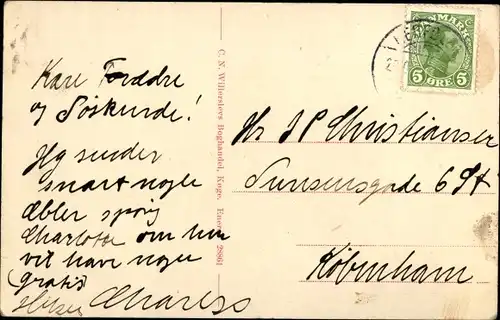 Kære Forældre
og Söskende!
Jeg sender
snart nogle
Æbler spörg
Charlotte om hun
vil have nogen
(gratis)
Hilsen Charless
C. N. Willerslevs Boghandel, Køge. Eneret 28861
DANMARK
5 ØRE 5
Hr J P Christiansen
Sunsensgade 6 St
København